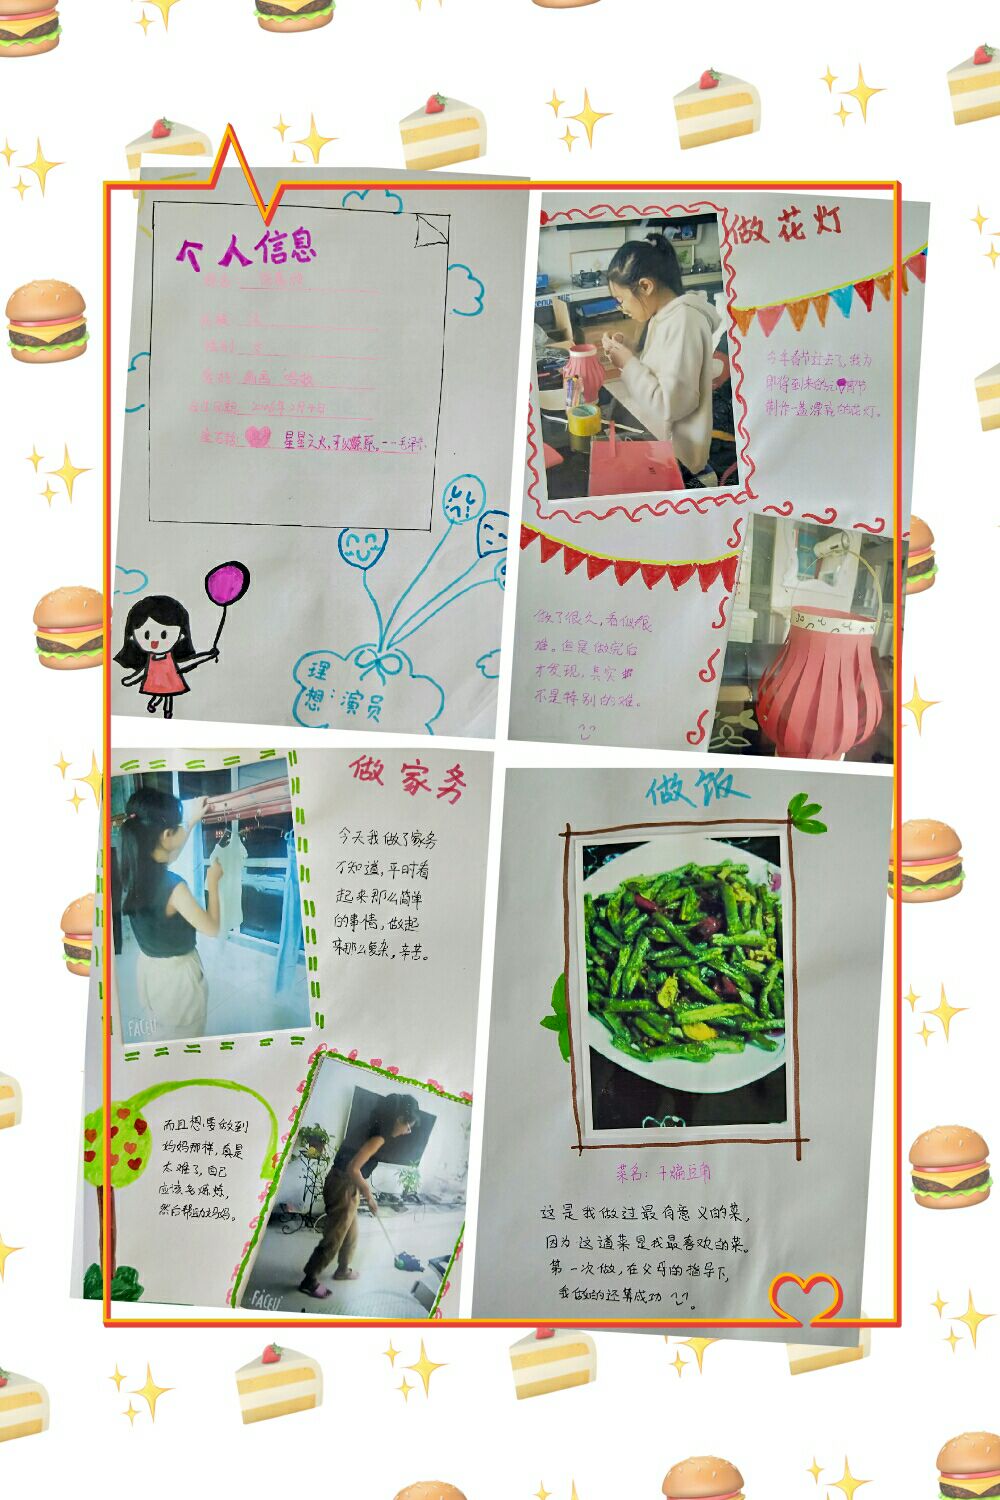 个人信息
爱好: 画画 唱歌
座右铭: 星星之火,可以燎原。--毛泽东
理
想:演员
做花灯
今年春节过去了,我为
即将到来的元宵节
制作一盏漂亮的花灯。
做了很久,看似很
难。但是做完后
才发现,其实
不是特别的难。
做家务
今天我做了家务
不知道,平时看
起来那么简单
的事情,做起
来那么复杂,辛苦。
FACEU
而且想要做到
妈妈那样,真是
太难了,自己
应该多炼炼,
然后帮助妈妈。
FACEU
做饭
菜名:干煸豆角
这是我做过最有意义的菜,
因为这道菜是我最喜欢的菜。
第一次做,在父母的指导下,
我做的还算成功。